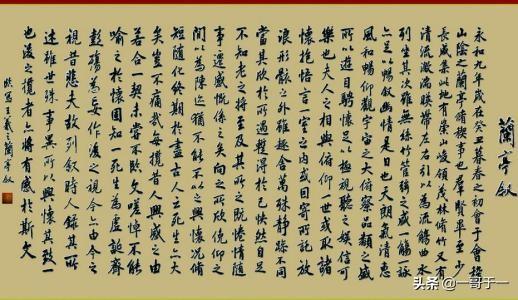 蘭亭叙
永和九年歲在癸丑暮春之初會于會稽
山陰之蘭亭脩稧事也羣賢畢至少
長咸集此地有崇山峻領茂林脩竹又有
清流激湍暎帶左右引以為流觴曲水
列坐其次雖無絲竹管弦之盛一觴一詠
亦足以暢叙幽情是日也天朗氣清惠
風和暢仰觀宇宙之大俯察品類之盛
所以遊目騁懷足以極視聽之娛信可
樂也夫人之相與俯仰一世或取諸
懷抱悟言一室之內或因寄所託放
浪形骸之外雖趣舍萬殊靜躁不同
當其欣於所遇暫得於己怏然自足
不知老之將至及其所之既惓情隨
事遷感慨係之矣向之所欣俛仰之
間以為陳迹猶不能不以之興懷況脩
短隨化終期於盡古人云死生亦大
矣豈不痛哉每攬昔人興感之由
若合一契未嘗不臨文嗟悼不能
喻之於懷固知一死生為虛誕齊
彭殤為妄作後之視今亦由今之
視昔悲夫故列叙時人錄其所
述雖世殊事異所以興懷其致一
也後之攬者亦將有感於斯文
臨寫王羲之蘭亭叙
头条@一哥于一